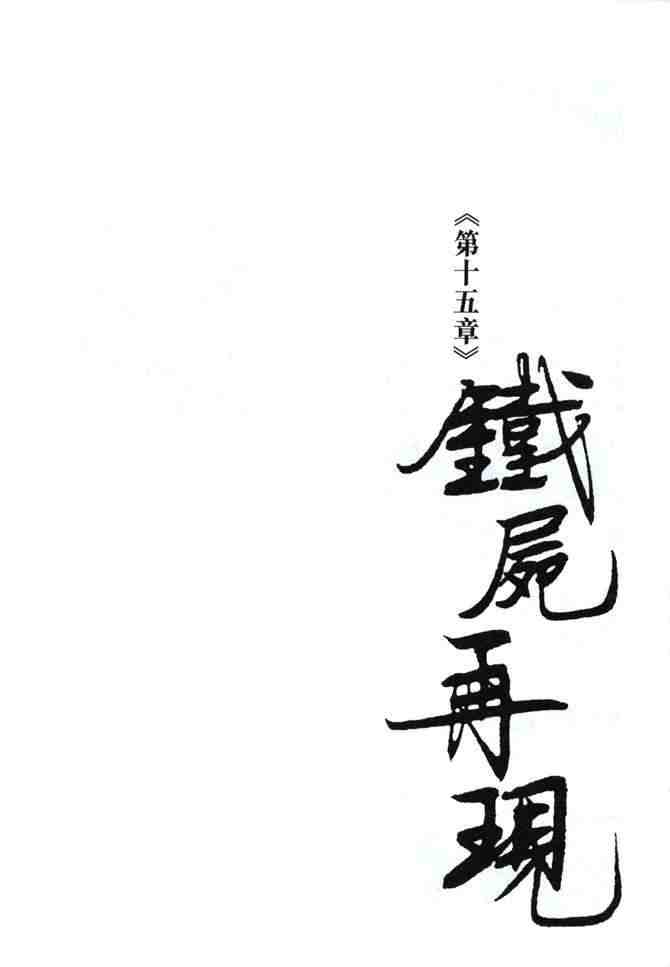 《第十五章》
鐵屍再現